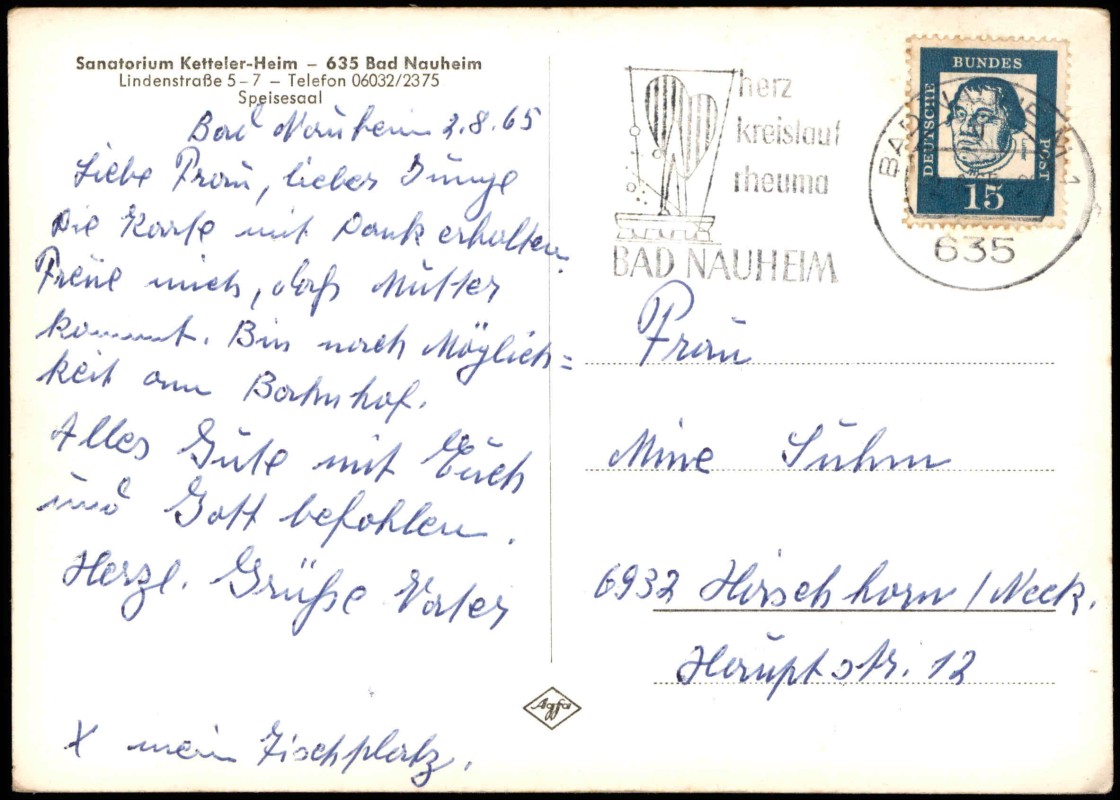 Sanatorium Ketteler-Heim – 635 Bad Nauheim
Lindenstraße 5-7 – Telefon 06032/2375
Speisesaal
Bad Nauheim 2.8.65
Liebe Frau, lieber Junge
Die Karte mit Dank erhalten.
Freue mich, daß Mutter
kommt. Bin nach Möglich=
keit am Bahnhof.
Alles Gute mit Euch
und Gott befohlen.
Herzl. Grüße Vater
X mein Tischplatz.
Agfa
herz
kreislauf
rheuma
BAD NAUHEIM
DEUTSCHE
BUNDES
POST
15
BAD NAUHEIM 1
635
Frau
Mine Suhm
6932 Hirschhorn/Neck.
Hauptstr. 12